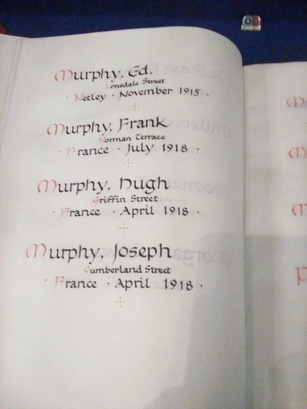 Murphy, Ed.
Lonsdale Street
· Netley · November 1915 ·
Murphy, Frank
Norman Terrace
· France · July 1918 ·
Murphy, Hugh
Griffin Street
· France · April 1918 ·
Murphy, Joseph
Cumberland Street
· France · April 1918 ·